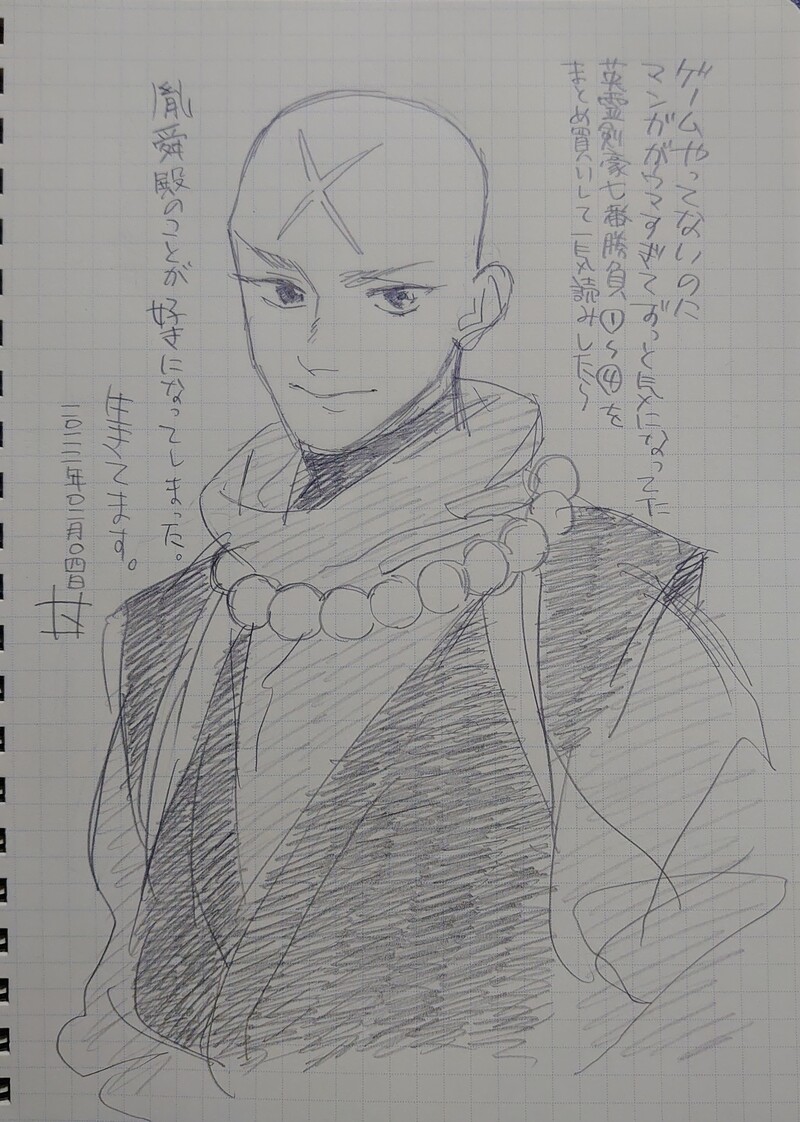 ゲームやってないのに
マンガがウマすぎてずっと気になってた
英霊剣豪七番勝負①〜④を
まとめ買いして一気読みしたら
胤舜殿のことが好きになってしまった。
生きてます。
二〇二二年〇二月〇四日